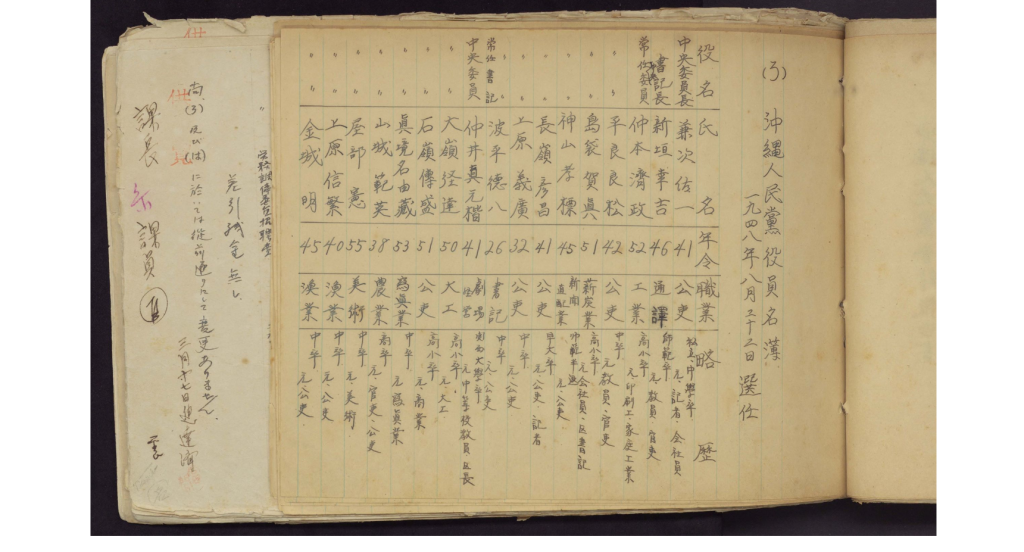 (ろ) 沖縄人民黨役員名薄
一九四八年八月二十二日 選任
役名 氏名 年令 職業 略歴
中央委員長 兼次佐一 41 公吏 中學卒 元、記者、会社員
書記長 新垣幸吉 46 通譯 師範卒 元、教員、官吏
常任委員 仲本濟政 52 工業 高小卒 元、印刷工、家庭工業
〃 平良良松 42 公吏 中卒 元教員、官吏
〃 島袋賀真 51 薪炭業 高小卒 元会社員、区書記
〃 神山孝標 45 新聞 元、公吏
〃 長嶺彦昌 41 公吏 早大卒 元公吏、記者
〃 上原義廣 32 〃 中卒 元、公吏
常任書記 波平德八 26 書記 中卒 元、公吏
中央委員 仲井真元楷 41 劇場 大學卒 元中等校教員、区長
〃 大嶺経達 50 大工 高小卒 元、大工
〃 石嶺傳盛 51 公吏 高小卒 元、商業
〃 真境名由藏 53 寫真業 中卒 元寫真業
〃 山城範英 38 農業 高卒 元、官吏、公吏
〃 屋部憲 55 美術 中卒 元、美術
〃 上原信繁 40 漁業 中卒 元、公吏
〃 金城明 45 漁業 中卒 元公吏
差引残金無し
尚、(ろ)及び(は)に於いては從前通りにして変更ありません
三月十七日
課長 課員